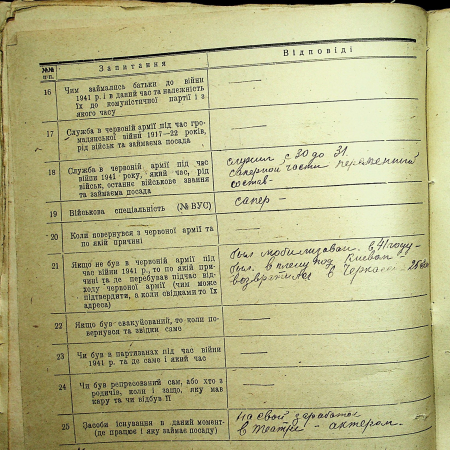 №№ п-п. Запитання Відповіді
16 Чим займались батьки до війни
1941 р. і в даний час та належність
їх до комуністичної партії і з
якого часу
17 Служба в червоній армії під час гро-
мадянської війни 1917—22 років,
рід військ та займаєма посада
18 Служба в червоній армії під час
війни 1941 року, який час, рід
військ, останнє військове звання
та займаєма посада
служил с 30 до 31
саперной части переменный
состав -
19 Військова спеціальність (№ ВУС)
сапер -
20 Коли повернувся з червоної армії та
по якій причині
21 Якщо не був в червоній армії під
час війни 1941 р., то по якій при-
чині та де перебував підчас від-
ходу червоної армії (чим може
підтвердити, а коли свідками то їх
адреса)
был мобилизован в 41 году -
был в плену под Киевом
возвратился в
22 Якщо був евакуйований, то коли по-
вернувся та звідки саме
23 Чи був в партизанах під час війни
1941 р. та де саме і який час
24 Чи був репресований сам, або хто з
родичів, коли і защо, яку мав
кару та чи відбув її
25 Засоби існування в даний момент-
(де працює і яку займає посаду)
на свой заработок
в театре - актером. -